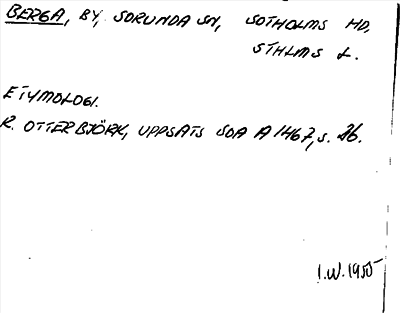 BERGA, BY, SORUNDA SN, SOTHOLMS HD,
STHLMS L.
ETYMOLOGI.
R. OTTERBJÖRK, UPPSATS SOA A 1467, S. 26.
I.W. 1955